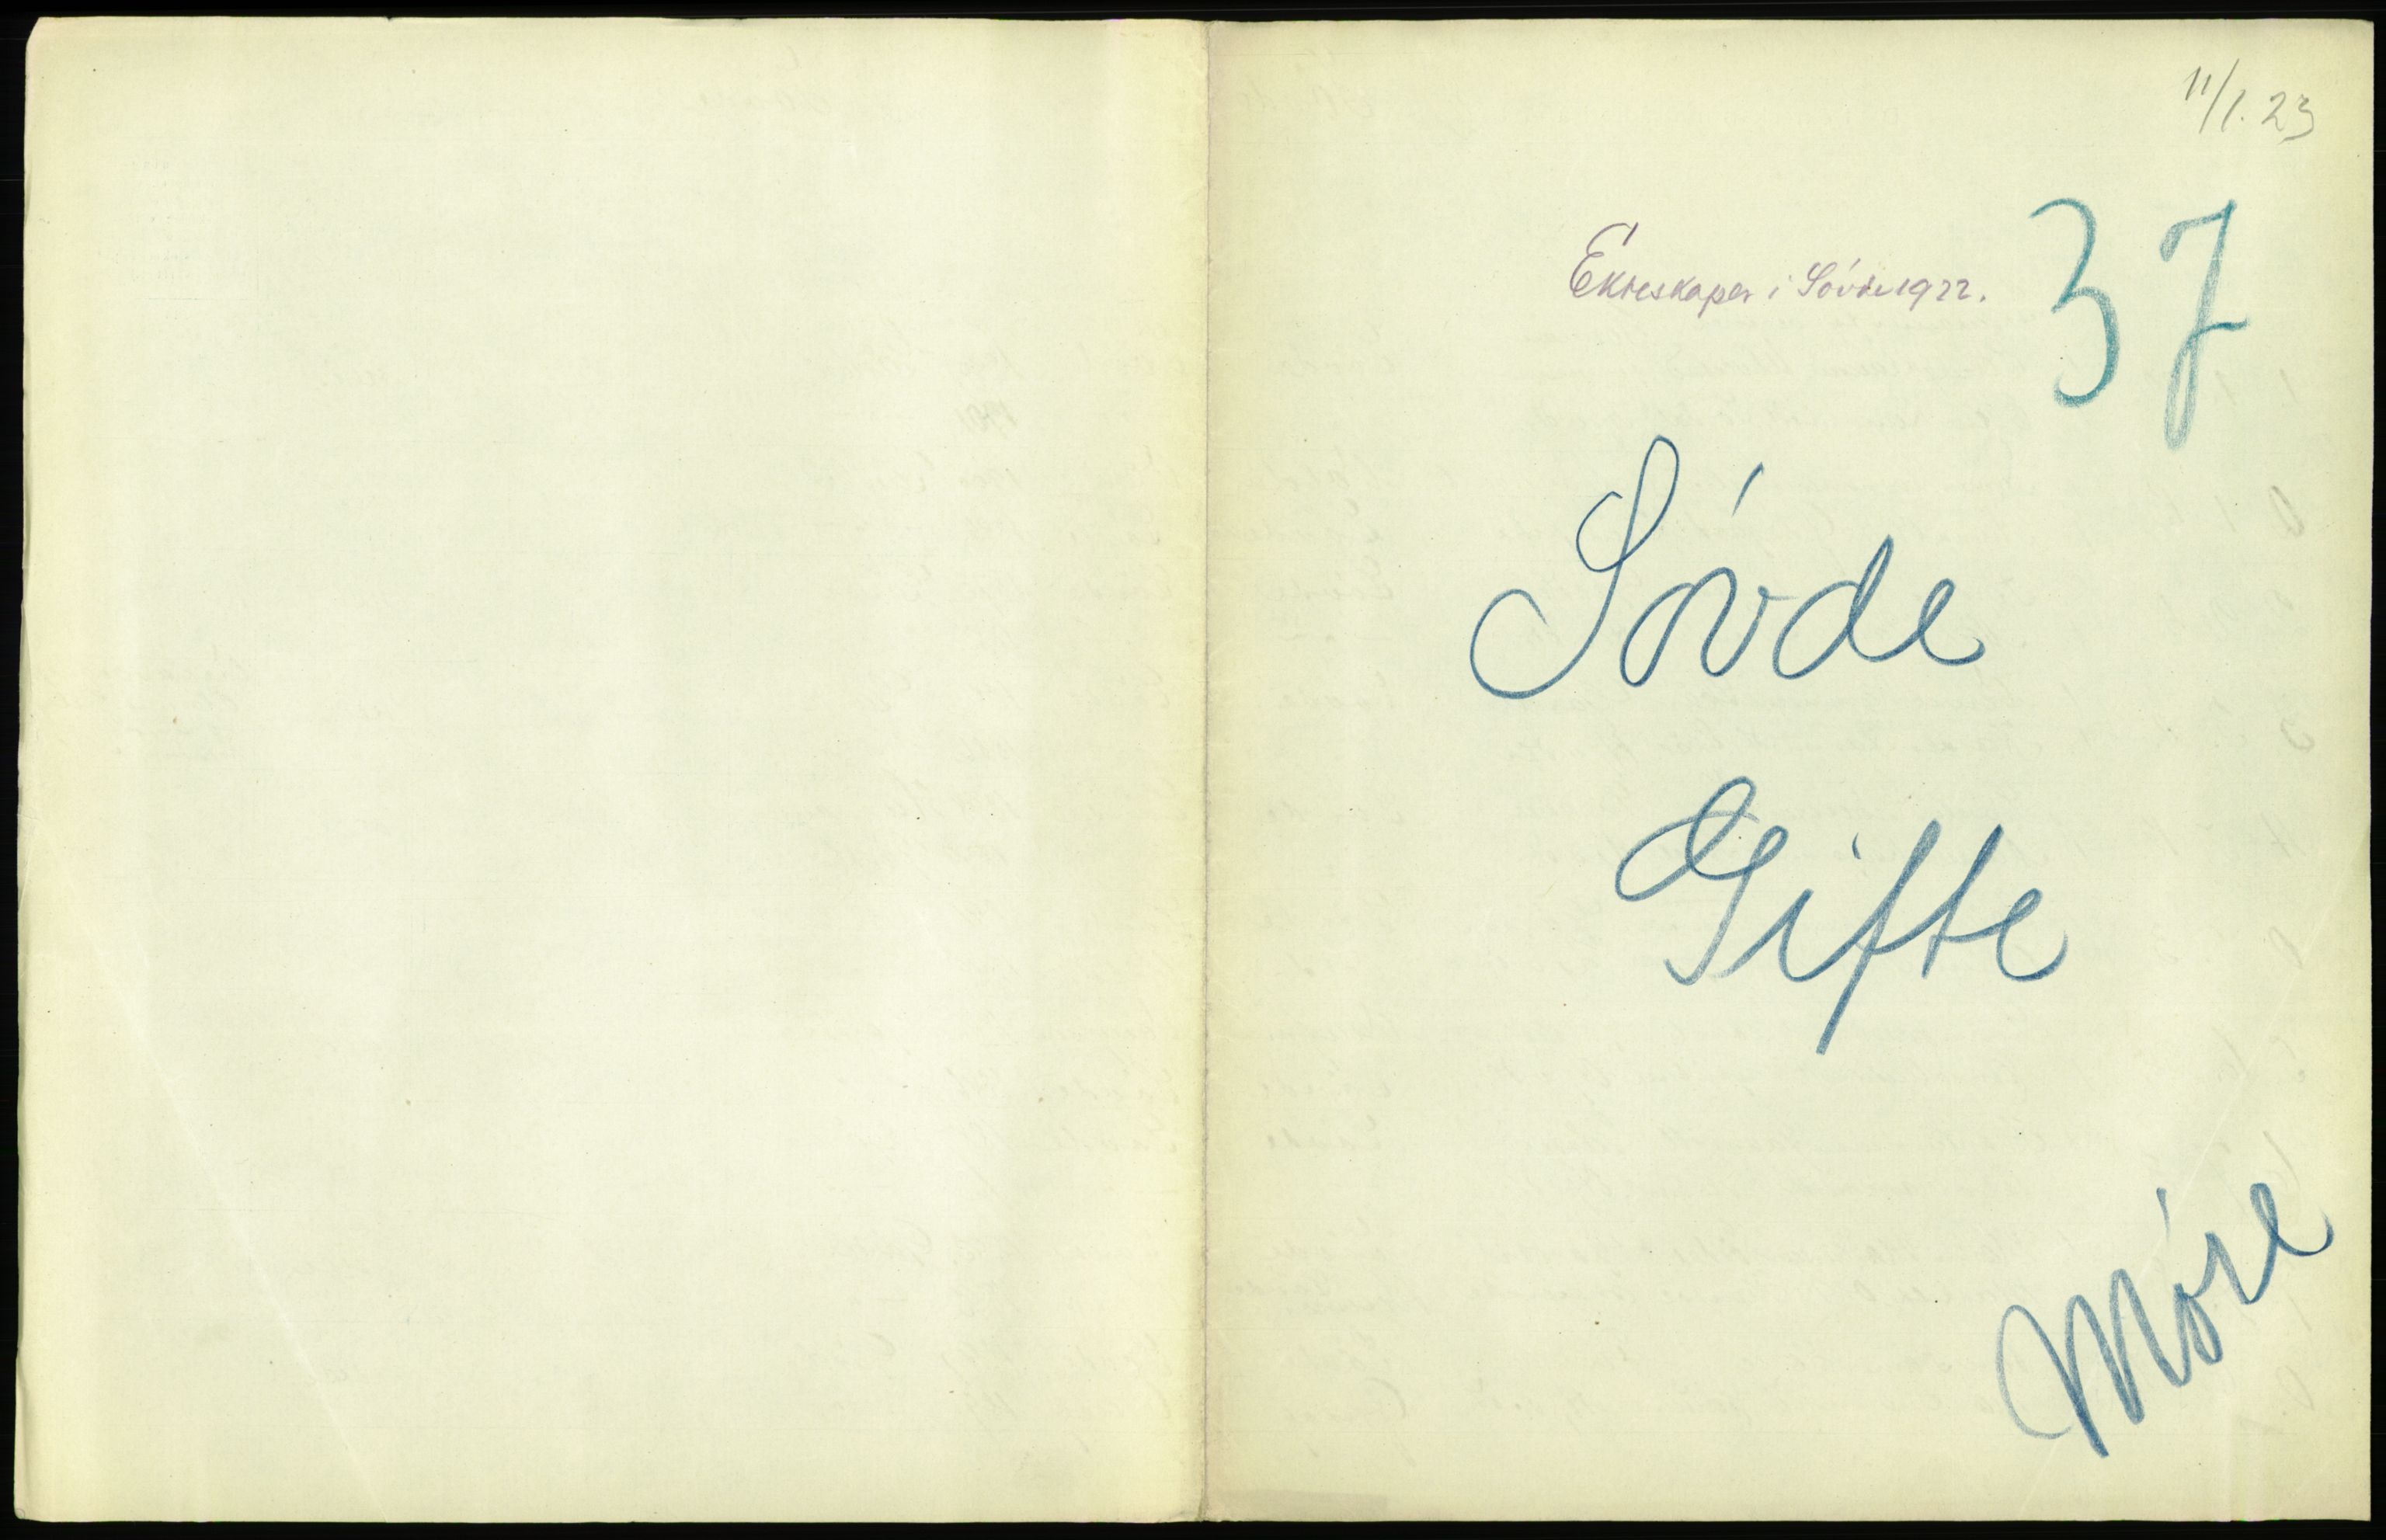 11/1. 23
37
Ekteskaper i Sóvde 1922.
Sóvde
Gifte
Móre